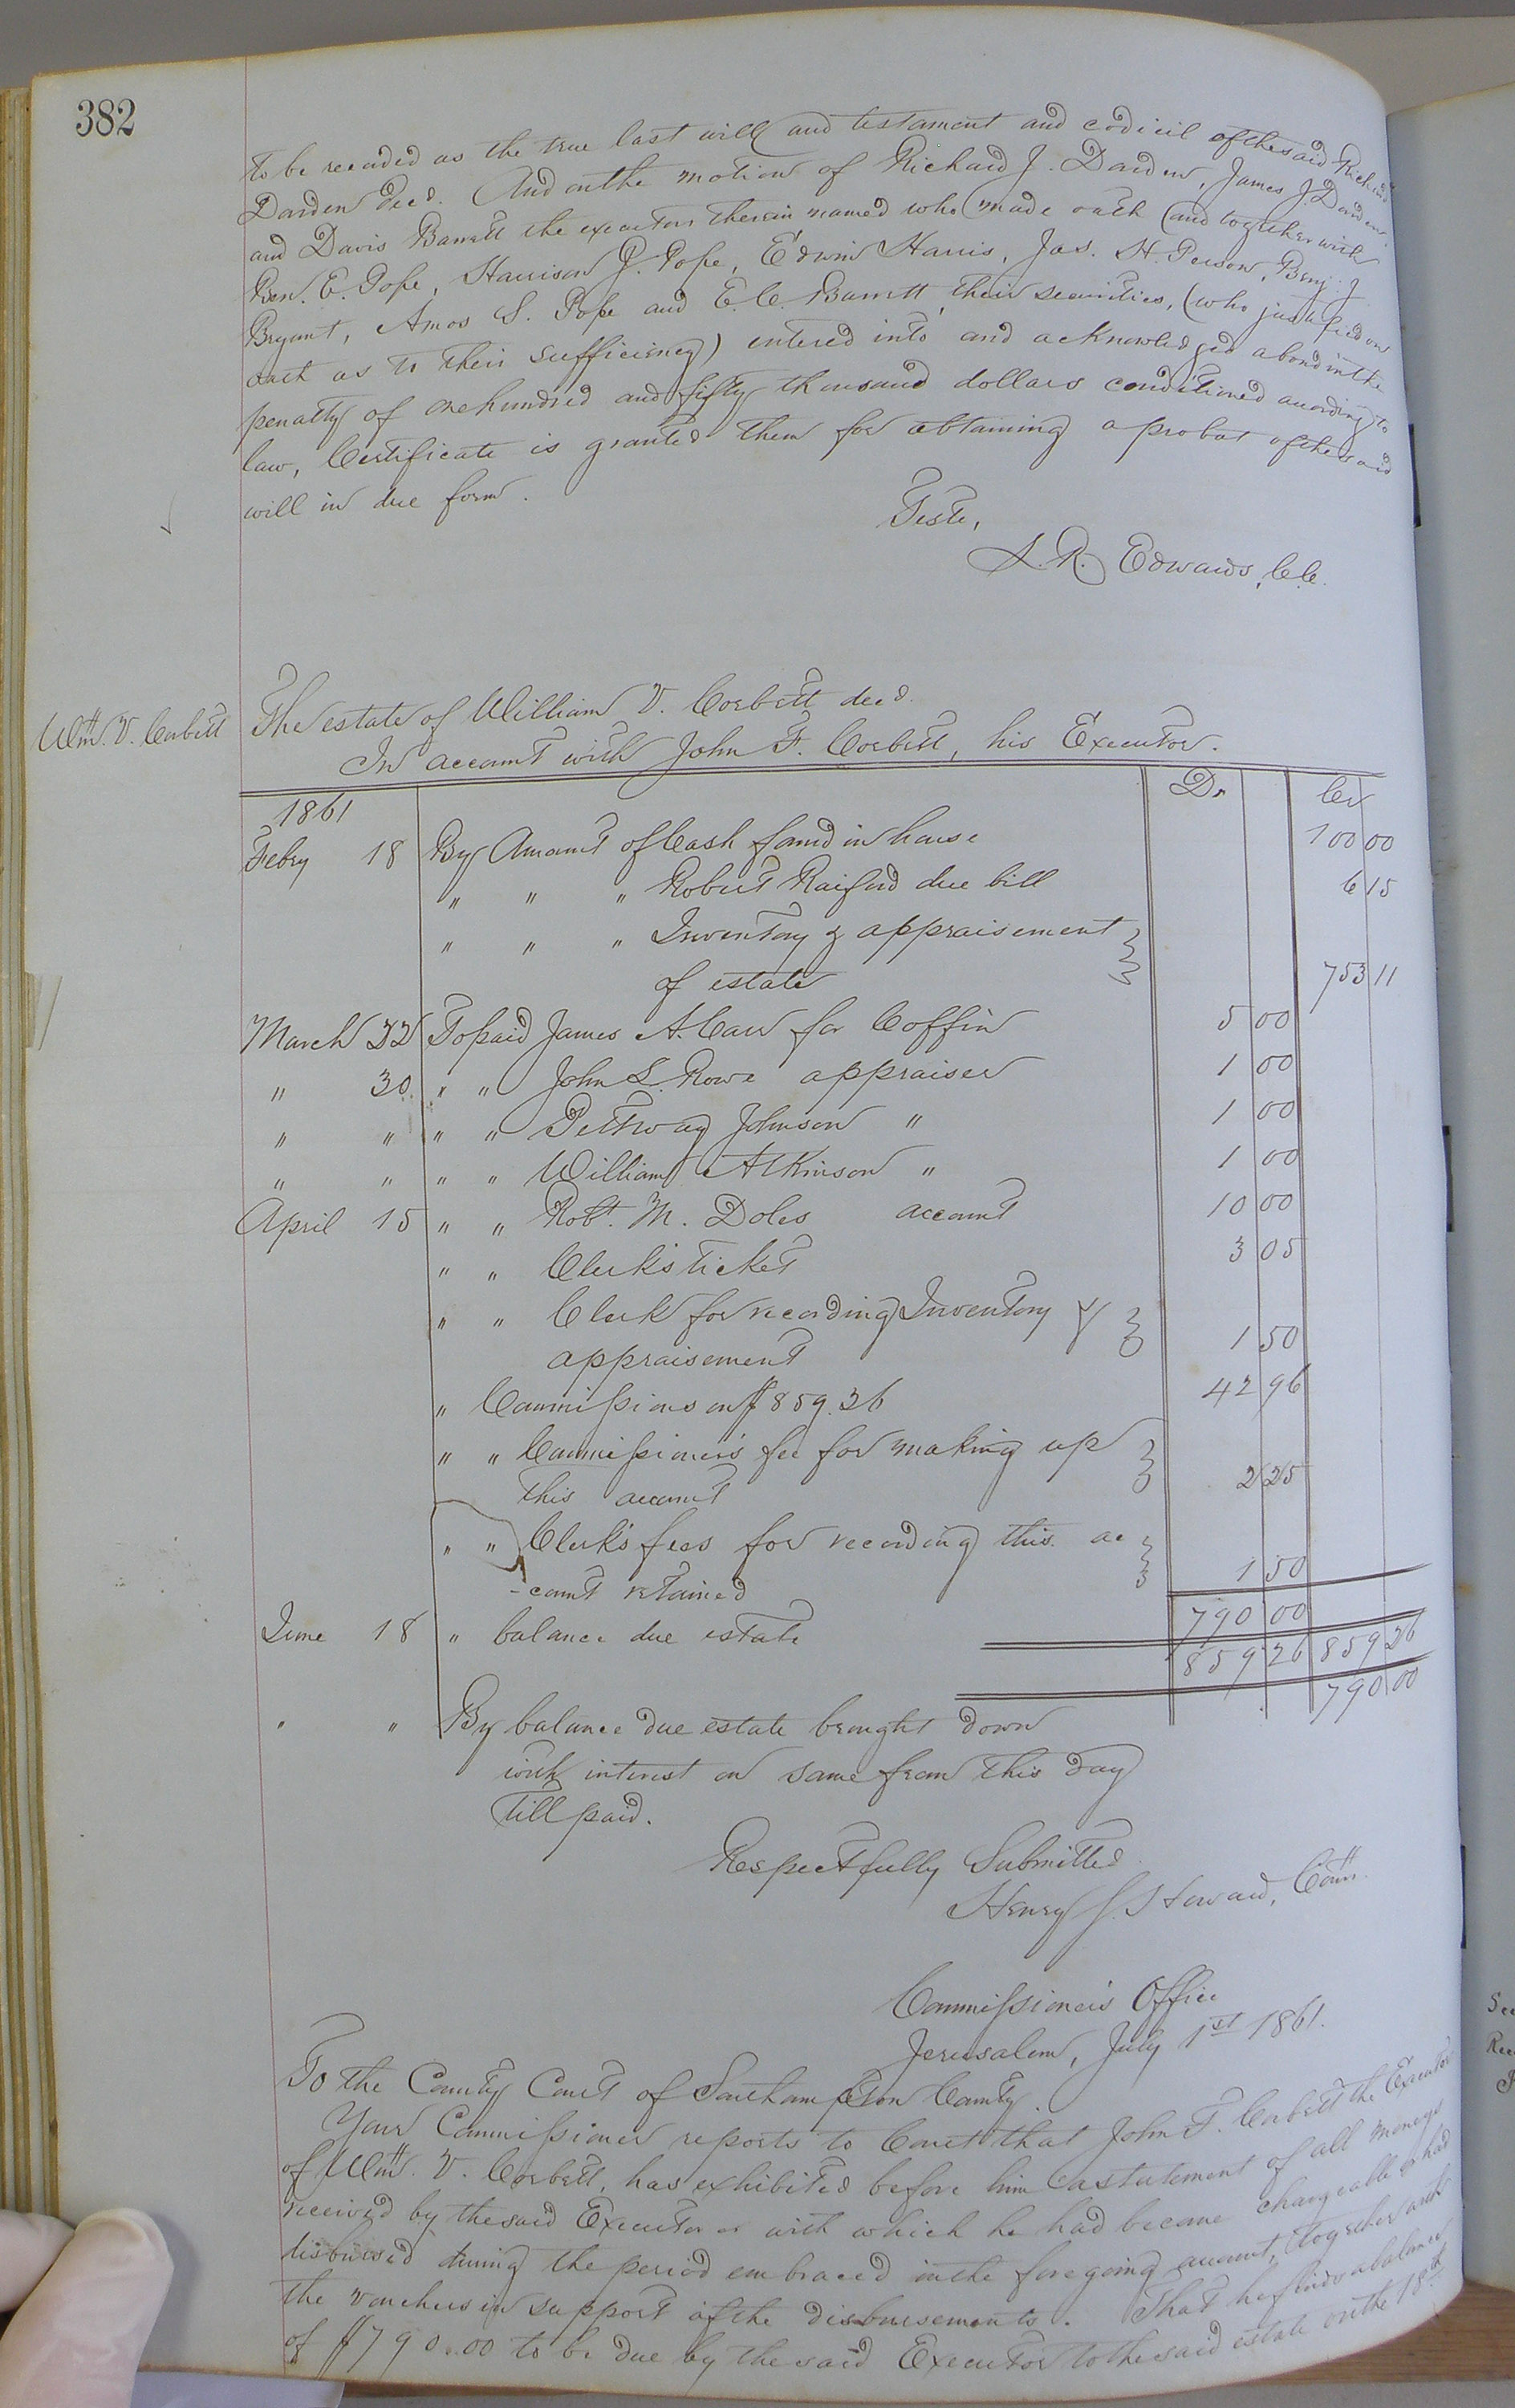 382
to be recorded as the true last will and testament and codicil of the said Richard
Darden decd. And on the motion of Richard J. Darden, James J. Darden
and Davis Barrett the executors therein named who made oath and together with
Ben. E. Pope, Harrison J. Pope, Edwin Harris, Jas. H. Person, Benj. J
Bryant, Amos S. Pope and E. C. Barrett their securities, (who justified on
oath as to their sufficiency) entered into and acknowledged a bond in the
penalty of one hundred and fifty thousand dollars conditioned according to
law, Certificate is granted them for obtaining a probat of the said
will in due form.
Teste,
L. R. Edwards, C.C.
Wm. V. Corbett
The estate of William V. Corbett decd.
In account with John F. Corbett, his Executor.
1861 Dr Cr
Febry 18 By Amount of Cash found in house 100 00
" " " Robert Raiford due bill 6 15
" " " Inventory & appraisement
of estate 753 11
March 22 To paid James A. Carr for Coffin 5 00
" 30 " " John L. Rowe appraiser 1 00
" " " " Pettway Johnson " 1 00
" " " " William Atkinson " 1 00
April 15 " " Robt. M. Doles account 10 00
" " Clerk's ticket 3 05
" " Clerk for recording Inventory &
appraisement 1 50
" Commissions on $859.26 42 96
" " Commissioner's fee for making up
this account 2 25
" " Clerk's fees for recording this ac
-count retained 1 50
June 18 " balance due estate 790 00
859 26 859 26
790 00
" " By balance due estate brought down
with interest on same from this day
till paid.
Respectfully Submitted
Henry J. Howard, Comr.
Commissioner's Office
Jerusalem, July 1st 1861.
To the County Court of Southampton County.
Your Commissioner reports to Court that John F. Corbett the Executor
of Wm. V. Corbett, has exhibited before him a statement of all moneys
received by the said Executor or with which he had become chargeable or had
disbursed during the period embraced in the foregoing account, together with
the vouchers in support of the disbursements. That he finds a balance
of $790.00 to be due by the said Executor to the said estate on the 18th